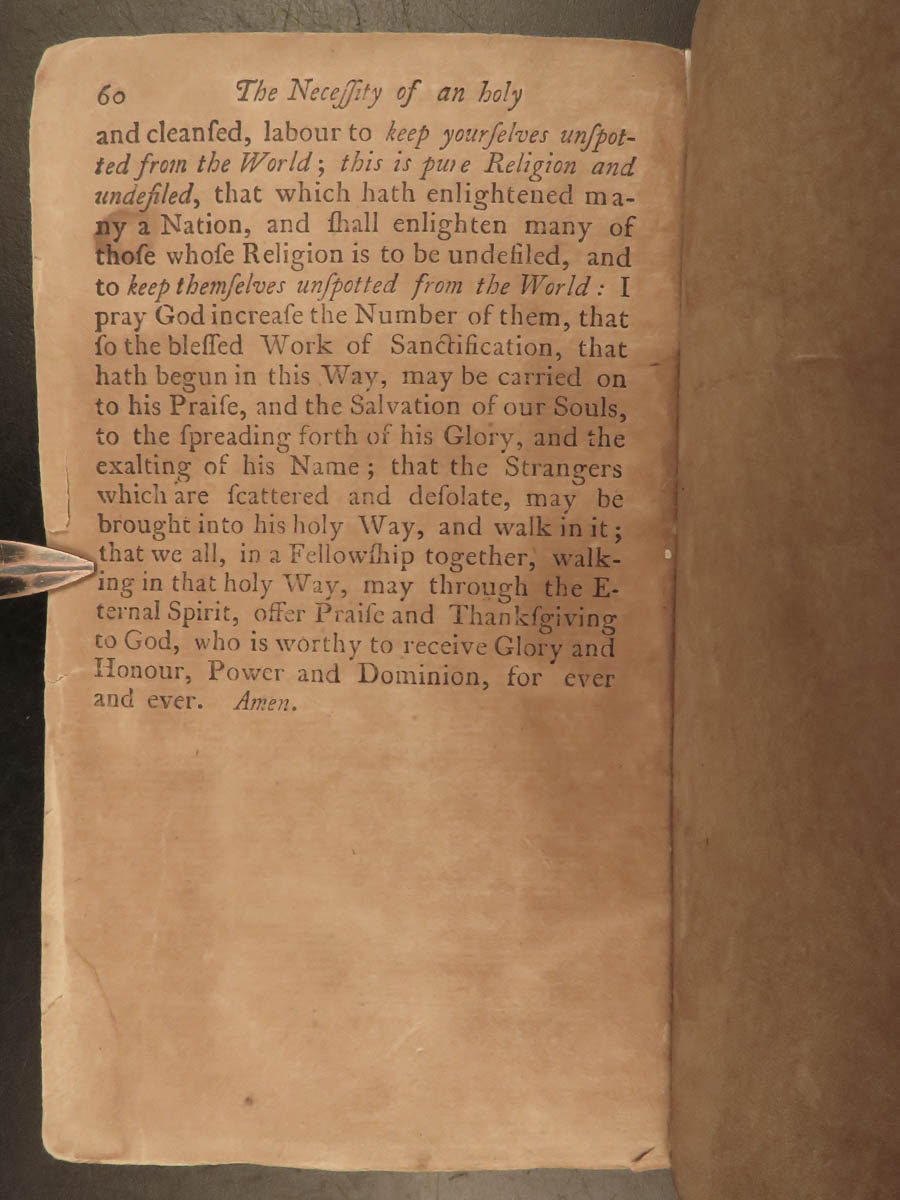 60 The Neceſſity of an holy
and cleanſed, labour to keep yourſelves unſpot-
ted from the World; this is pure Religion and
undefiled, that which hath enlightened ma-
ny a Nation, and ſhall enlighten many of
thoſe whoſe Religion is to be undefiled, and
to keep themſelves unſpotted from the World: I
pray God increaſe the Number of them, that
ſo the bleſſed Work of Sanctification, that
hath begun in this Way, may be carried on
to his Praiſe, and the Salvation of our Souls,
to the ſpreading forth of his Glory, and the
exalting of his Name; that the Strangers
which are ſcattered and deſolate, may be
brought into his holy Way, and walk in it;
that we all, in a Fellowſhip together, walk-
ing in that holy Way, may through the E-
ternal Spirit, offer Praiſe and Thankſgiving
to God, who is worthy to receive Glory and
Honour, Power and Dominion, for ever
and ever. Amen.